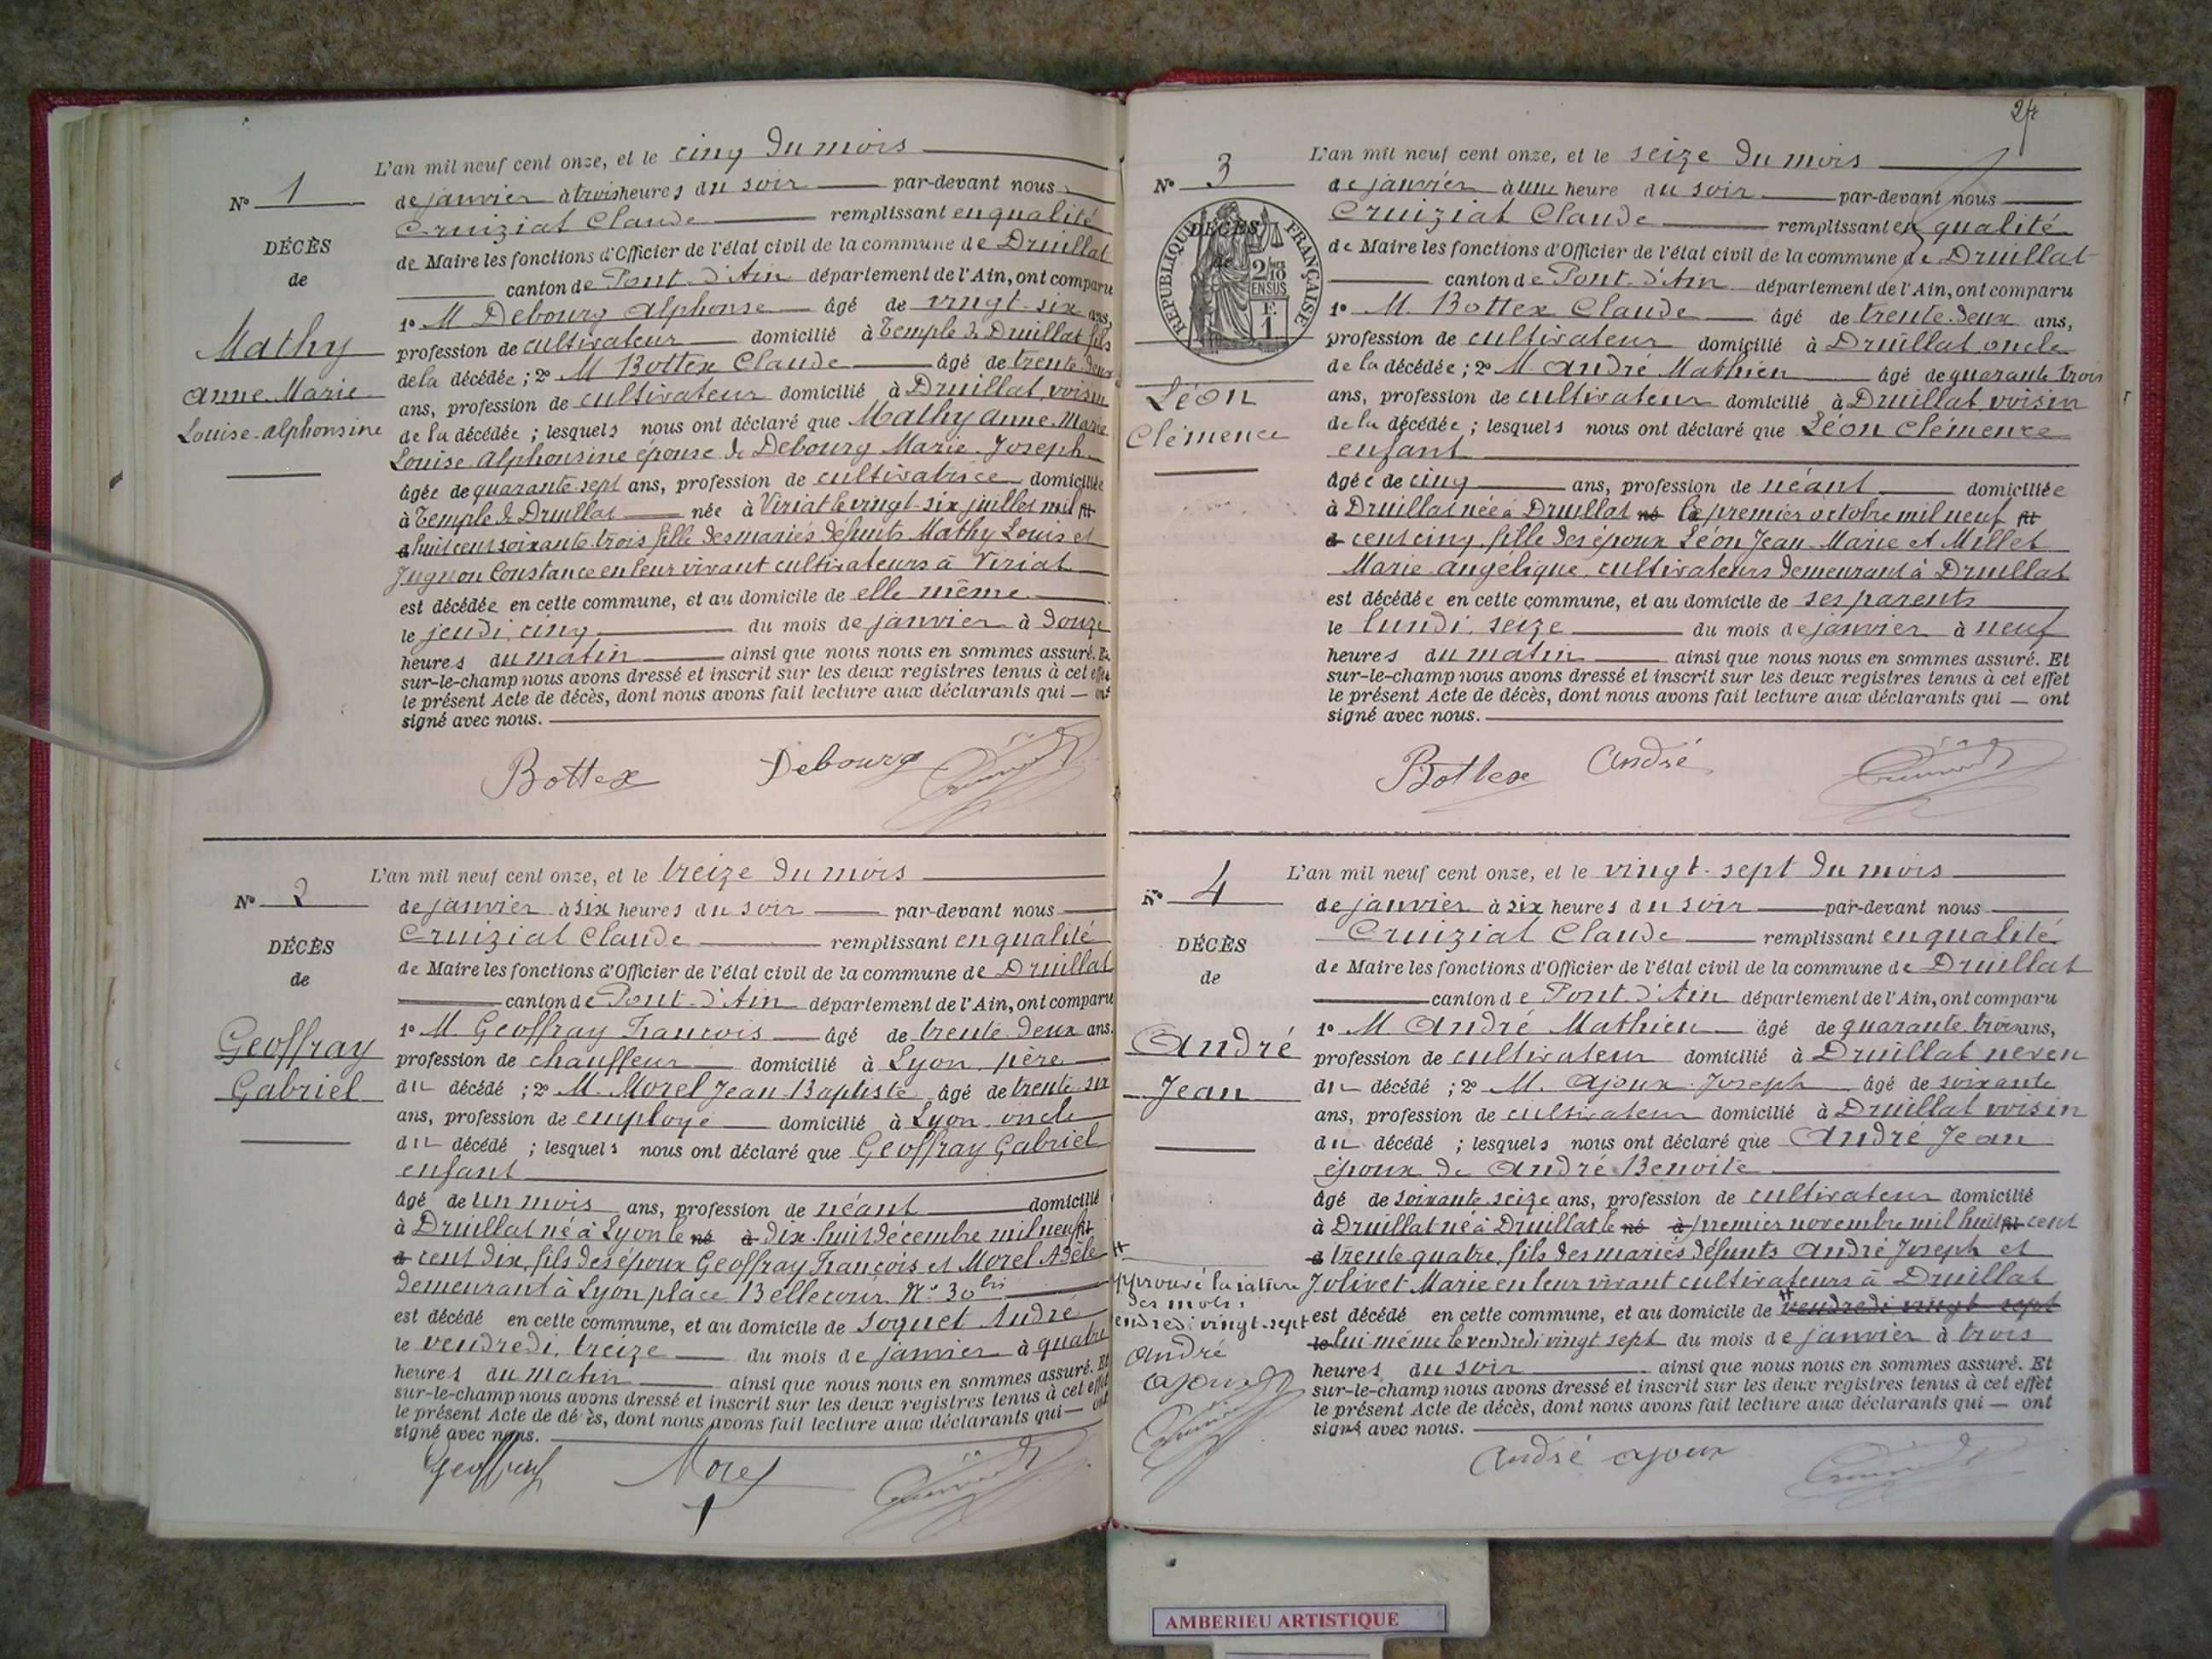 L'an mil neuf cent onze, et le cinq du mois
N° 1
de janvier à trois heures du soir par-devant nous
Cruiziat Claude remplissant en qualité
DÉCÈS
de Maire les fonctions d'Officier de l'état civil de la commune de Druillat
de
canton de Pont-d'Ain département de l'Ain, ont comparu
1° M Debourg Alphonse âgé de vingt-six ans,
Mathy
profession de cultivateur domicilié à Temple de Druillat fils
de la décédée ; 2° M Bottex Claude âgé de trente-deux
Anne Marie
ans, profession de cultivateur domicilié à Druillat, voisin
Louise-Alphonsine
de la décédée ; lesquels nous ont déclaré que Mathy Anne, Marie
Louise Alphonsine épouse de Debourg Marie-Joseph
âgée de quarante-sept ans, profession de cultivatrice domiciliée
à Temple de Druillat née à Viriat le vingt-six juillet mil
huit cent soixante trois fille des mariés défunts Mathy Louis et
Jugnon Constance en leur vivant cultivateurs à Viriat
est décédée en cette commune, et au domicile de elle même
le jeudi, cinq du mois de janvier à douze
heures du matin ainsi que nous nous en sommes assuré. Et
sur-le-champ nous avons dressé et inscrit sur les deux registres tenus à cet effet
le présent Acte de décès, dont nous avons fait lecture aux déclarants qui — ont
signé avec nous.
Bottex Debourg
L'an mil neuf cent onze, et le treize du mois
N° 2
de janvier à six heures du soir par-devant nous
Cruiziat Claude remplissant en qualité
DÉCÈS
de Maire les fonctions d'Officier de l'état civil de la commune de Druillat
de
canton de Pont-d'Ain département de l'Ain, ont comparu
1° M Geoffray François âgé de trente-deux ans.
Geoffray
profession de chauffeur domicilié à Lyon, père
Gabriel
du décédé ; 2° M. Morel Jean Baptiste âgé de trente six
ans, profession de employé domicilié à Lyon, oncle
du décédé ; lesquels nous ont déclaré que Geoffray Gabriel
enfant
âgé de un mois ans, profession de néant domicilié
à Druillat né à Lyon le né à dix-huit décembre mil neuf
cent dix, fils des époux Geoffray François et Morel Adèle
demeurant à Lyon place Bellecour N° 30 bis
est décédé en cette commune, et au domicile de Soquet André
le vendredi, treize du mois de janvier à quatre
heures du matin ainsi que nous nous en sommes assuré. Et
sur-le-champ nous avons dressé et inscrit sur les deux registres tenus à cet effet
le présent Acte de dé ès, dont nous avons fait lecture aux déclarants qui — ont
signé avec nous.
Geoffray Morel
24
L'an mil neuf cent onze, et le seize du mois
N° 3
de janvier à une heure du soir par-devant nous
Cruiziat Claude remplissant en qualité
DÉCÈS
de
RÉPUBLIQUE FRANÇAISE
2/10 EN SUS
F. 1
de Maire les fonctions d'Officier de l'état civil de la commune de Druillat
canton de Pont-d'Ain département de l'Ain, ont comparu
1° M. Bottex Claude âgé de trente-deux ans,
profession de cultivateur domicilié à Druillat, oncle
de la décédée ; 2° M. André Mathieu âgé de quarante trois
Léon
ans, profession de cultivateur domicilié à Druillat, voisin
Clémence
de la décédée ; lesquels nous ont déclaré que Léon Clémence
enfant
âgée de cinq ans, profession de néant domiciliée
à Druillat née à Druillat né le premier octobre mil neuf
cent cinq, fille des époux Léon Jean-Marie et Millet
Marie-Angélique, cultivateurs demeurant à Druillat
est décédée en cette commune, et au domicile de ses parents
le lundi, seize du mois de janvier à neuf
heures du matin ainsi que nous nous en sommes assuré. Et
sur-le-champ nous avons dressé et inscrit sur les deux registres tenus à cet effet
le présent Acte de décès, dont nous avons fait lecture aux déclarants qui — ont
signé avec nous.
Bottex André
L'an mil neuf cent onze, et le vingt-sept du mois
N° 4
de janvier à six heures du soir par-devant nous
Cruiziat Claude remplissant en qualité
DÉCÈS
de Maire les fonctions d'Officier de l'état civil de la commune de Druillat
de
canton de Pont-d'Ain département de l'Ain, ont comparu
1° M. André Mathieu âgé de quarante trois ans,
André
profession de cultivateur domicilié à Druillat neveu
Jean
du décédé ; 2° M. Ajoux Joseph âgé de soixante
ans, profession de cultivateur domicilié à Druillat voisin
du décédé ; lesquels nous ont déclaré que André Jean
époux de André Benoite
âgé de soixante-seize ans, profession de cultivateur domicilié
à Druillat né à Druillat le né à premier novembre mil huit cent
trente quatre, fils des mariés défunts André Joseph et
Jolivet Marie en leur vivant cultivateurs à Druillat
est décédé en cette commune, et au domicile de vendredi vingt-sept
le lui-même le vendredi vingt sept du mois de janvier à trois
heures du soir ainsi que nous nous en sommes assuré. Et
sur-le-champ nous avons dressé et inscrit sur les deux registres tenus à cet effet
le présent Acte de décès, dont nous avons fait lecture aux déclarants qui — ont
signé avec nous.
André Ajoux
pprouvé la rature
des mots:
endredi vingt-sept
André
Ajoux
AMBERIEU ARTISTIQUE